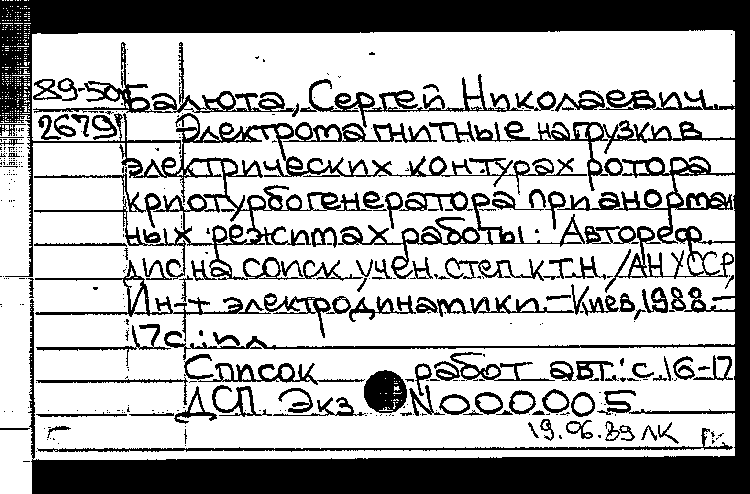 89-50 Балюта, Сергей Николаевич.
2679 Электромагнитные нагрузки в
электрических контурах ротора
криотурбогенератора при анормаль
ных режимах работы: Автореф.
дис на соиск. учен. степ к.т.н. /АН УССР,
Ин-т электродинамики.-Киев, 1988.-
17с.: ил.
Список работ авт.: с.16-17
ДСП. Экз N000005.
19.06.89 ЛК